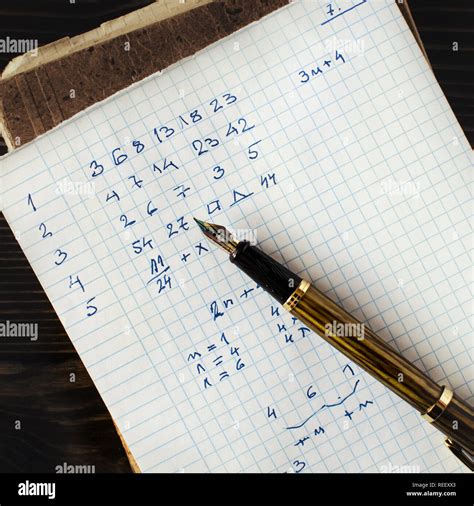 7.
3n+4
3 6 8 13 18 23
1 4 7 14 23 42
2 2 6 7 3 5
3 54 27 44
4 11/24 + x
5
2n +
n = 1
n = 4
n = 6
4 6 7
+n +n
3
alamy
Image ID: REEXX3
www.alamy.com